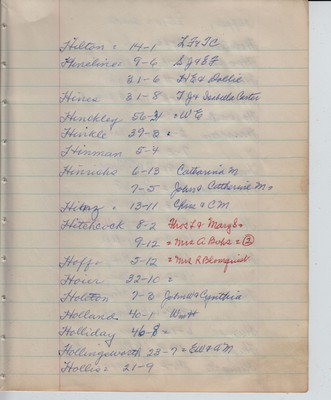 Hilton = 14-1 L F & T C
Hineline 9-6 S J & E F
31-6 H E & Dollie
Hines 31-8 F J & Isabella Carter
Hinckley 56-31 = W E
Hinkle 39-8 =
Hinman 5-4
Hinrichs 6-13 Catharina M
7-5 John & Catherine M =
13-11 Chris & C M
Hitchcock 8-2 & Mary E =
9-12 = Mrs A Bohs = ②
Hoff = 5-12 = Mrs R Blomquist
Hour 32-10 =
7-3 & Cynthia
Holland 40-1
Holliday 46-8 =
Hollingsworth 23-7 = E W & A M
Hollis = 21-9